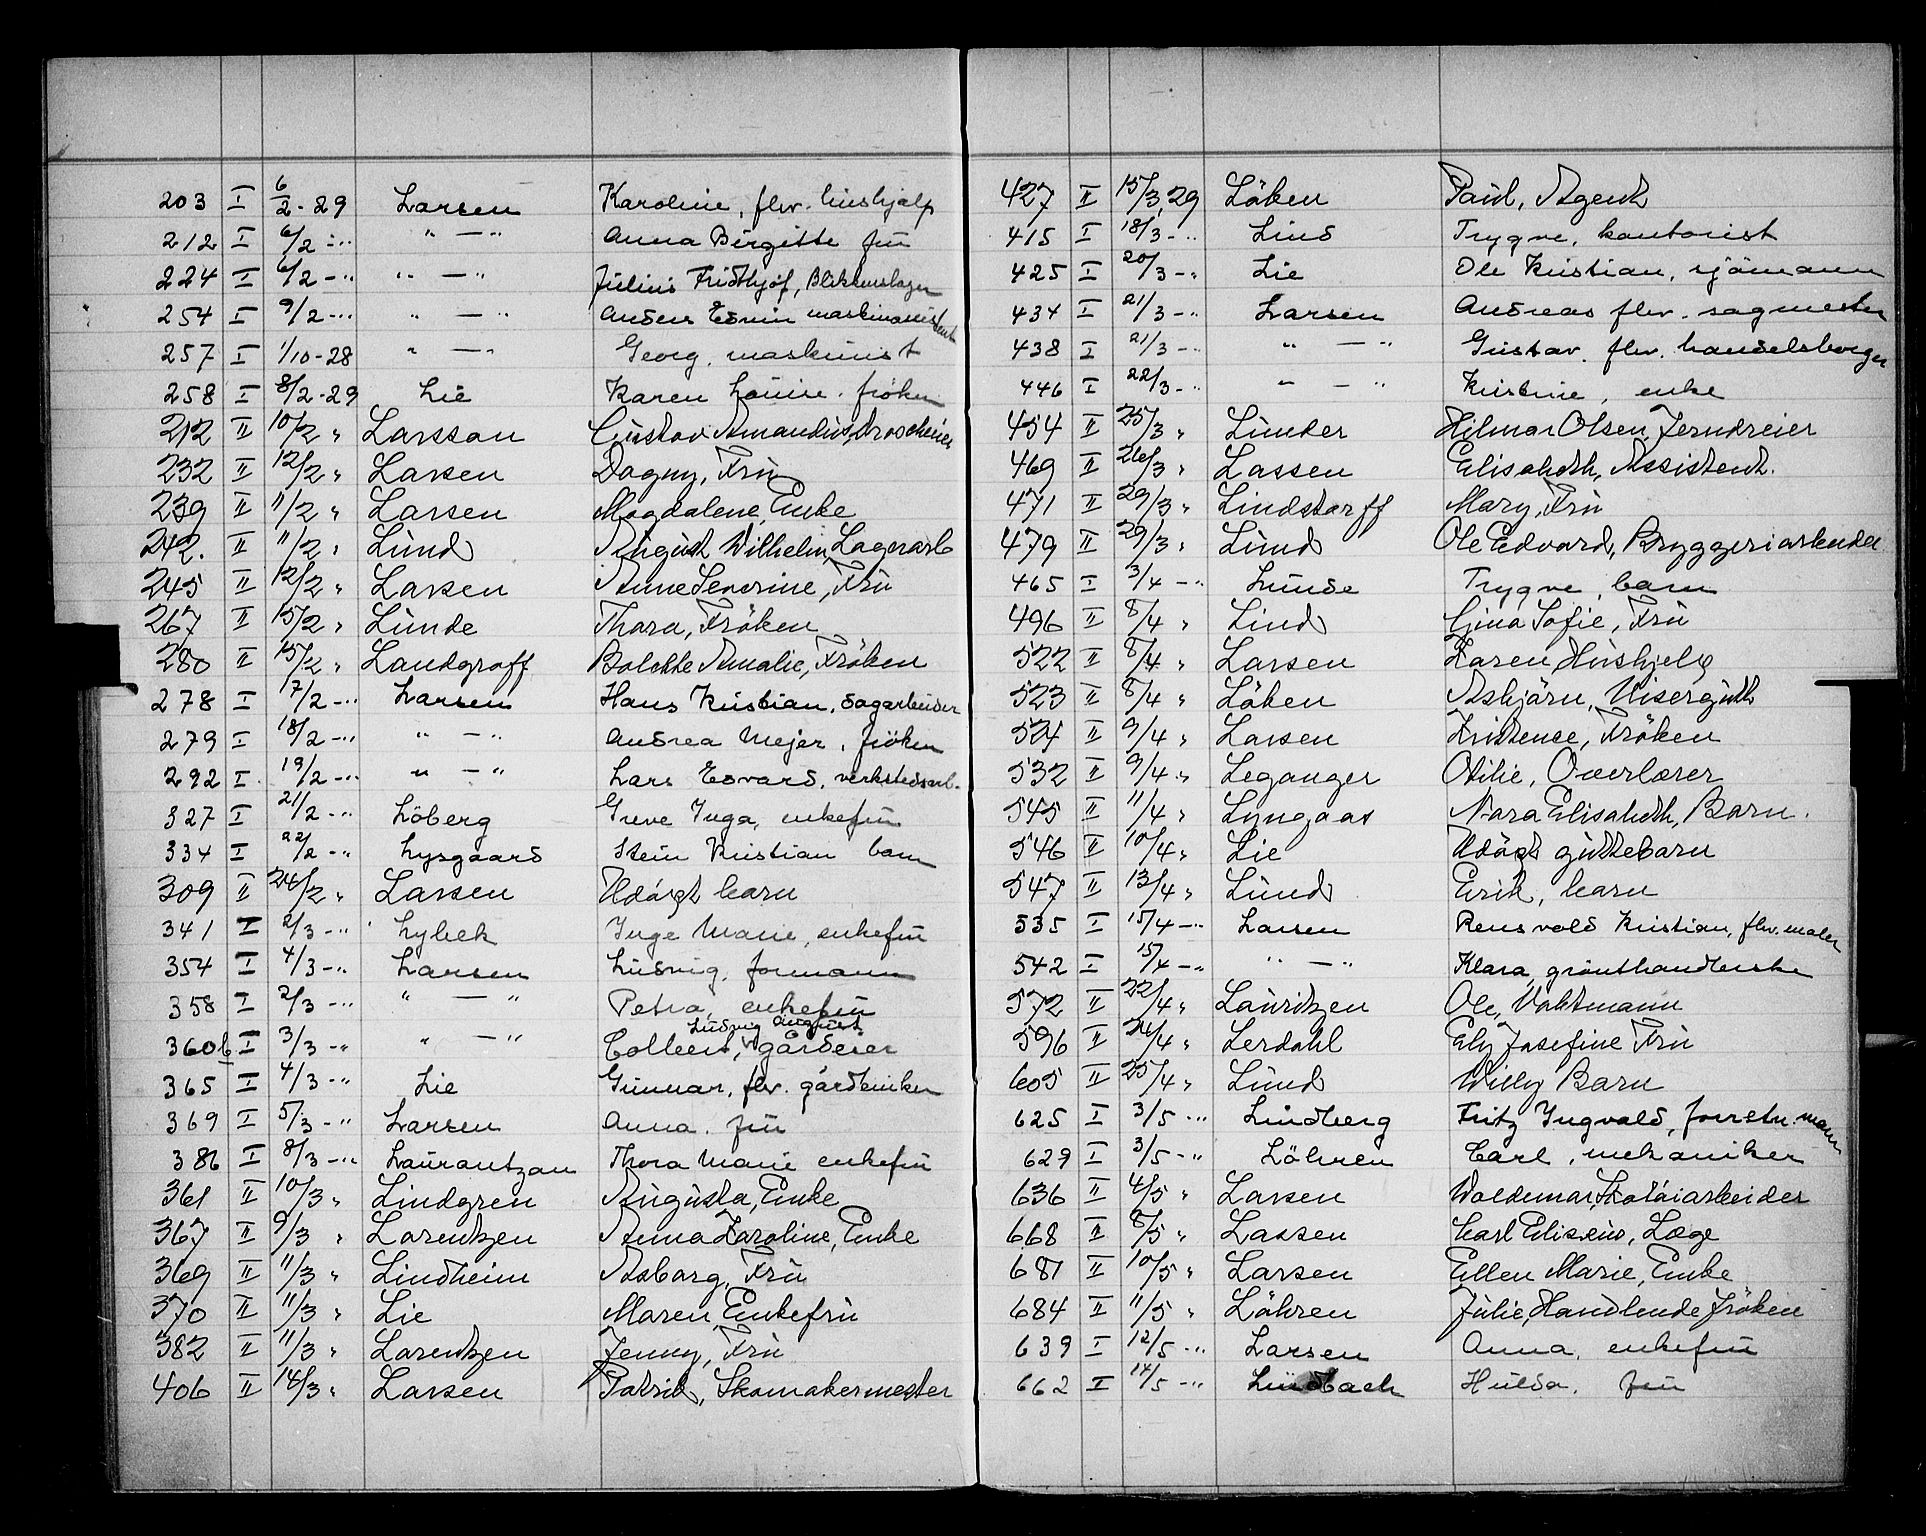 203 I 6/2-29 Larsen Karoline, flv. hushjelp
212 I 6/2-" " — " Anna Birgitte frü
224 I 6/2-" " — " Julius Fridthjof, Blikkenslager
254 I 9/2-" " — " Anders Edvin maskinassistent
257 I 1/10-28 " — " Georg, maskinist
258 I 8/2-29 Lie Karen Louise, frøken
212 II 10/2 " Larsson Gustav Amandus, Droscheeier
232 II 12/2 " Larsen Dagny, Frü
239 II 11/2 " Larsen Magdalene, Enke
242. II 11/2 " Lünd August Wilhelm, Lagerarb
245 II 12/2 " Larsen Anne Severine, Frü
267 II 15/2 " Lünde Thora, Fröken
280 II 15/2 " Landgraff Bolette Amalie, Fröken
278 I 17/2-" Larsen Hans Kristian, sagarbeider
279 I 18/2-" " — " Andrea Mejer, fröken
292 I 19/2-" " — " Lars Edvard, verkstedsarb.
327 I 21/2-" Löberg Greve Inga, enkefrü
334 I 22/2-" Lysgaard Stein Kristian barn
309 II 24/2 " Larsen Udöpt barn
341 I 2/3-" Lybeck Inge Marie, enkefrü
354 I 4/3-" Larsen Ludvig, formann
358 I 2/3-" " — " Petra, enkefrü
360b I 3/3-" " — " Colbert, Ludvig August gårdeier
365 I 4/3-" Lie Gunnar, flv. gårdeniker
369 I 5/3-" Larsen Anna, frü
386 I 8/3-" Laurantzan Thora Marie enkefrü
361 II 10/3 " Lindgren Augusta, Enke
367 II 9/3 " Larentzen Anna Karoline, Enke
369 II 11/3 " Lindheim Asbarg, Frü
370 II 11/3 " Lie Maren, Enkefrü
382 II 11/3 " Larentzen Jenny, Frü
406 II 14/3 " Larsen Patrik, Skomakermester
427 II 15/3,29 Löken Paul, Agent
415 I 18/3-" Lind Trygve, kontorist
425 I 20/3-" Lie Ole Kristian, sjömann
434 I 21/3-" Larsen Andreas flv. sagmester
438 I 21/3-" " — " Gustav. flv. handelsborger
446 I 22/3-" " — " Kristine, enke
454 II 25/3 " Lünder Hilmar Olsen, Jerndreier
469 II 26/3 " Lassen Elisabeth, Assistent.
471 II 29/3 " Lindstorff Mary, Frü
479 II 29/3 " Lünd Ole Edvard, Bryggeriarbeider
465 I 3/4-" Lunde Trygve, barn
496 II 8/4 " Lind Gina Sofie, Frü
522 II 8/4 " Larsen Karen Hüshjelp
523 II 8/4 " Löken Asbjörn, Visergütt
524 II 9/4 " Larsen Kristense, Fröken
532 II 9/4 " Leganger Otilie, Overlærer
545 II 11/4 " Lyngaas Nora Elisabeth, Barn.
546 II 10/4 " Lie Udöpt güttebarn
547 II 13/4 " Lünd Eirik, barn
535 I 15/4-" Larsen Rensvold Kristian, flv. maler
542 I 15/4-" " — " Klara, grønthandlerske
572 II 22/4 " Lauritzen Ole, Vaktmann
596 II 24/4 " Lerdahl Ely Josefine Frü
605 II 25/4 " Lünd Willy Barn
625 I 3/5-" Lindberg Fritz Ingvald, forretn.mann
629 I 3/5-" Löhren Carl, mekaniker
636 II 4/5 " Larsen Valdemar, Skotöiarbeider
668 II 8/5 " Lassen Carl Eliseus, Læge
681 II 10/5 " Larsen Ellen Marie, Enke
684 II 11/5 " Löhren Julie, Handlende Fröken
639 I 12/5-" Larsen Anna, enkefrü
662 I 14/5-" Lindbach Hulda, frü